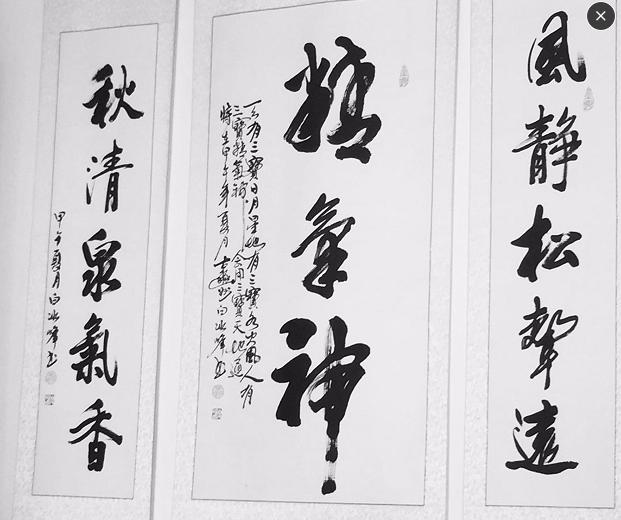 風静松聲遠
精氣神
天有三寶日月星地有三寶水火風人有
三寶精氣神會用三寶天地通
甲午年夏月白冰峰书
秋清泉氣香
甲午夏月白冰峰书